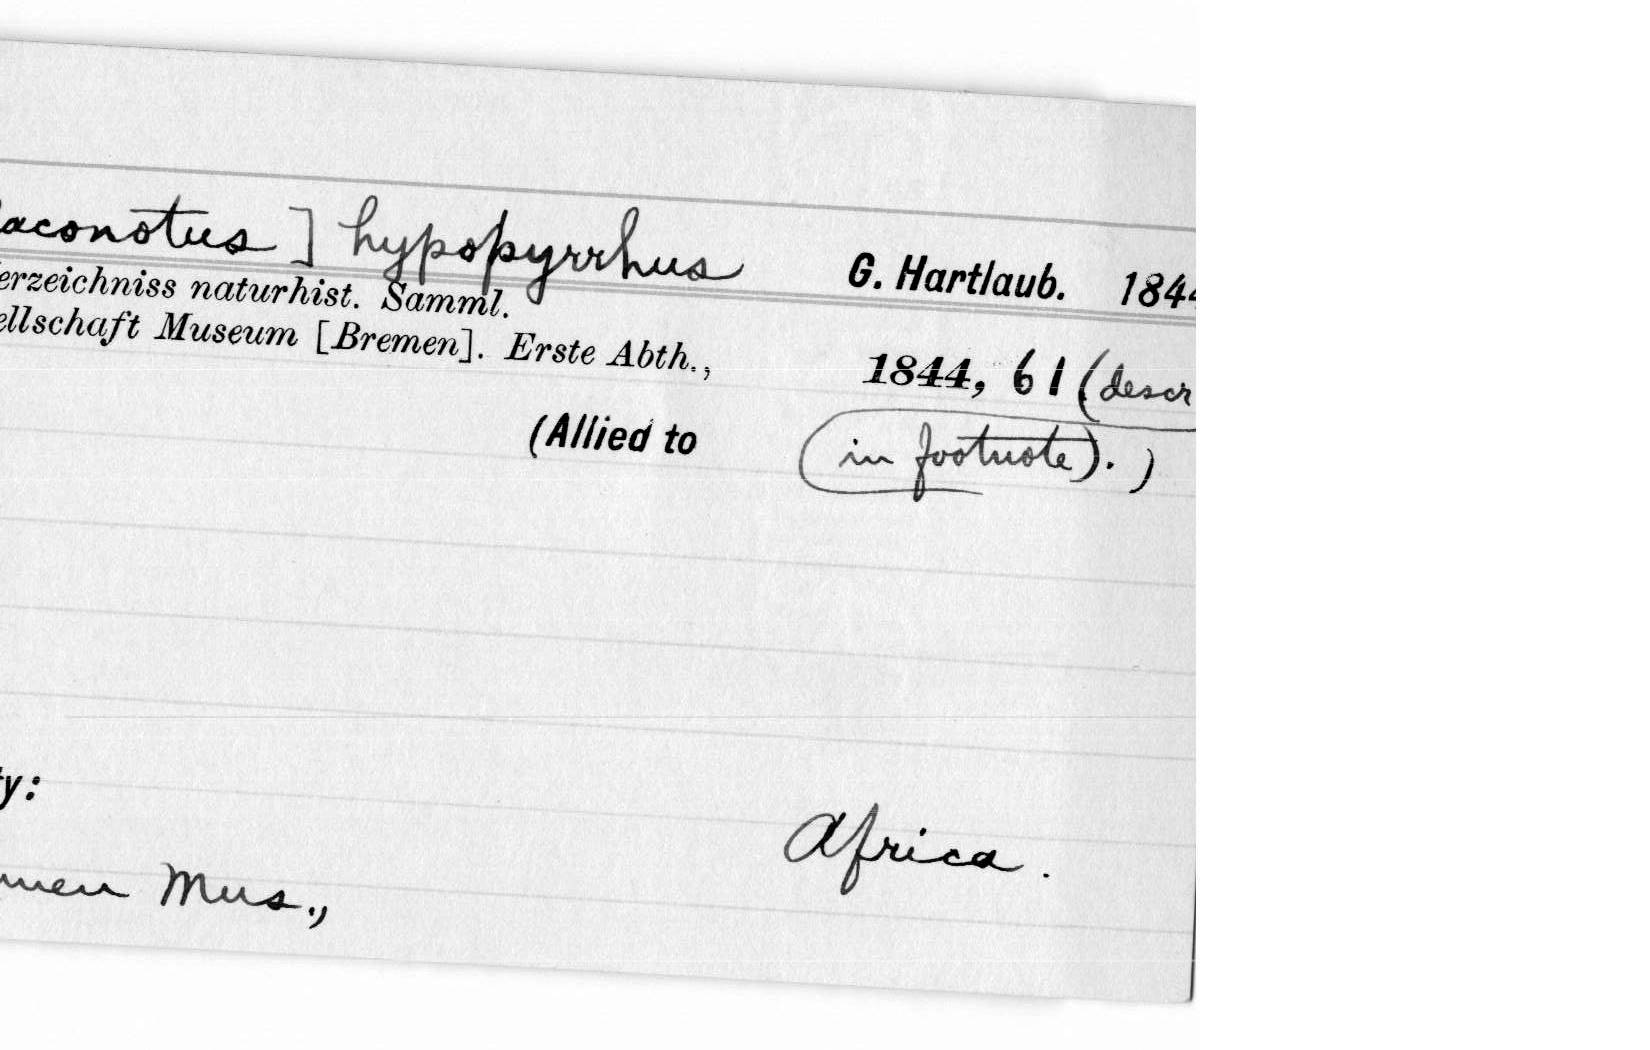 laconotus ] hypopyrrhus G. Hartlaub. 1844
erzeichniss naturhist. Samml.
ellschaft Museum [Bremen]. Erste Abth., 1844, 61 (descr
(Allied to in footnote). )
ty: Africa.
men Mus.,